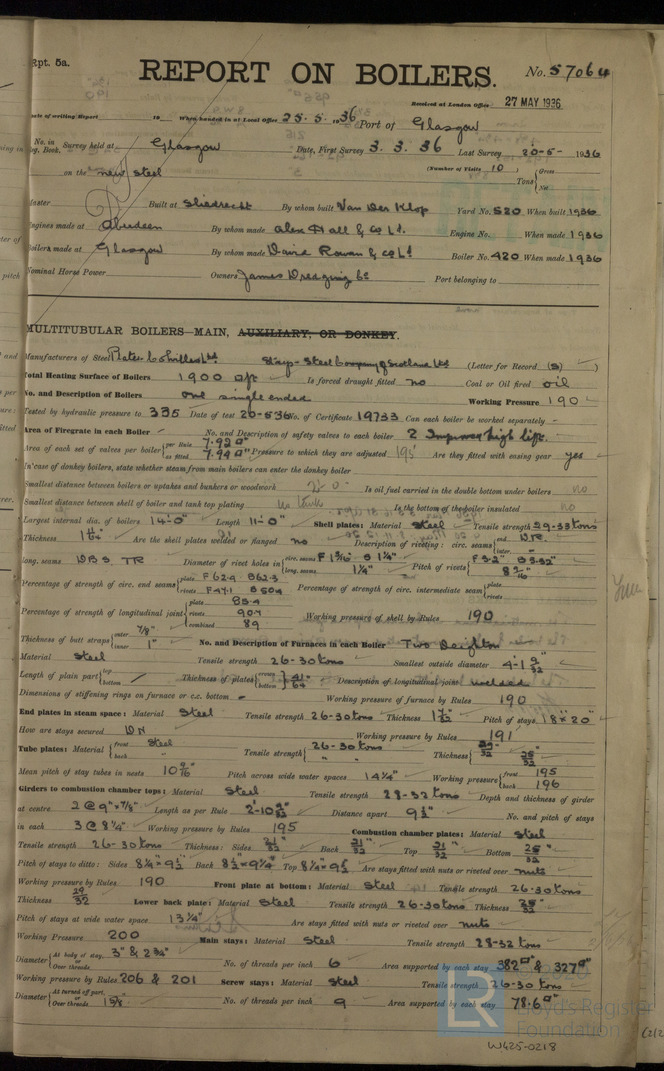 Rpt. 5a.
REPORT ON BOILERS.
No. 57064
Received at London Office 27 MAY 1936
Date of writing Report 19 When handed in at Local Office 25.5.1936 Port of Glasgow
No. in Reg. Book. Survey held at Glasgow Date, First Survey 3.3.36 Last Survey 20-5-1936
on the new steel (Number of Visits 10) Tons Gross Net
Master Built at Sliedrecht By whom built Van Der Klop Yard No. 520 When built 1936
Engines made at Aberdeen By whom made Alex Hall & Co Ld. Engine No. When made 1936
Boilers made at Glasgow By whom made David Rowan & Co Ld Boiler No. 420 When made 1936
Nominal Horse Power Owners James Dredging Co Port belonging to
MULTITUBULAR BOILERS—MAIN, AUXILIARY, OR DONKEY.
Manufacturers of Steel Plates Colvilles Ltd Stays - Steel Company of Scotland Ltd (Letter for Record (S) )
Total Heating Surface of Boilers 1900 sq ft Is forced draught fitted no Coal or Oil fired oil
No. and Description of Boilers One single ended Working Pressure 190
Tested by hydraulic pressure to 335 Date of test 20-5-36 No. of Certificate 19733 Can each boiler be worked separately -
Area of Firegrate in each Boiler - No. and Description of safety valves to each boiler 2 Improved high lift.
Area of each set of valves per boiler per Rule 7.92 as fitted 7.94 Pressure to which they are adjusted 195 Are they fitted with easing gear yes
In case of donkey boilers, state whether steam from main boilers can enter the donkey boiler
Smallest distance between boilers or uptakes and bunkers or woodwork Is oil fuel carried in the double bottom under boilers no
Smallest distance between shell of boiler and tank top plating Is the bottom of the boiler insulated no
Largest internal dia. of boilers 14'-0" Length 11'-0" Shell plates: Material Steel Tensile strength 29-33 tons
Thickness Are the shell plates welded or flanged no Description of riveting: circ. seams end D.R. inter.
long. seams D.B.S. T.R. Diameter of rivet holes in circ. seams F 1 3/16 B 1 1/4" long. seams 1 1/4" Pitch of rivets
Percentage of strength of circ. end seams plate F 62.9 B 62.3 rivets F 47.1 B 50.4 Percentage of strength of circ. intermediate seam plate rivets
Percentage of strength of longitudinal joint plate 85.4 rivets 90.7 combined 89 Working pressure of shell by Rules 190
Thickness of butt straps outer 7/8" inner 1" No. and Description of Furnaces in each Boiler Two Deighton
Material Steel Tensile strength 26-30 tons Smallest outside diameter 4'-1 9/32
Length of plain part top bottom Thickness of plates crown bottom 41/64 Description of longitudinal joint welded
Dimensions of stiffening rings on furnace or c.c. bottom - Working pressure of furnace by Rules 190
End plates in steam space: Material Steel Tensile strength 26-30 tons Thickness 1 7/32" Pitch of stays 18" x 20"
How are stays secured D N Working pressure by Rules 191
Tube plates: Material front Steel back " Tensile strength 26-30 tons " " Thickness 29/32 25/32
Mean pitch of stay tubes in nests Pitch across wide water spaces 14 1/4" Working pressure front 195 back 196
Girders to combustion chamber tops: Material Steel Tensile strength 28-32 tons Depth and thickness of girder
at centre 2 @ 9" x 7/8" Length as per Rule Distance apart 9 1/2" No. and pitch of stays
in each 3 @ 8 1/4" Working pressure by Rules 195 Combustion chamber plates: Material Steel
Tensile strength 26-30 tons Thickness: Sides 21/32 Back 21/32 Top 21/32 Bottom 25/32
Pitch of stays to ditto: Sides 8 1/4" x 9 1/2 Back 8 1/2 x 9 1/4" Top 8 1/4" x 9 1/2 Are stays fitted with nuts or riveted over nuts
Working pressure by Rules 190 Front plate at bottom: Material Steel Tensile strength 26-30 tons
Thickness 29/32 Lower back plate: Material Steel Tensile strength 26-30 tons Thickness
Pitch of stays at wide water space 13 1/4" Are stays fitted with nuts or riveted over nuts
Working Pressure 200 Main stays: Material Steel Tensile strength 28-32 tons
Diameter At body of stay, or Over threads 3" & 2 3/4" No. of threads per inch 6 Area supported by each stay 382" & 327"
Working pressure by Rules 206 & 201 Screw stays: Material Steel Tensile strength 26-30 tons
Diameter At turned off part, or Over threads 1 5/8" No. of threads per inch 9 Area supported by each stay 78.6"
LR Lloyd's Register Foundation
W425-0218